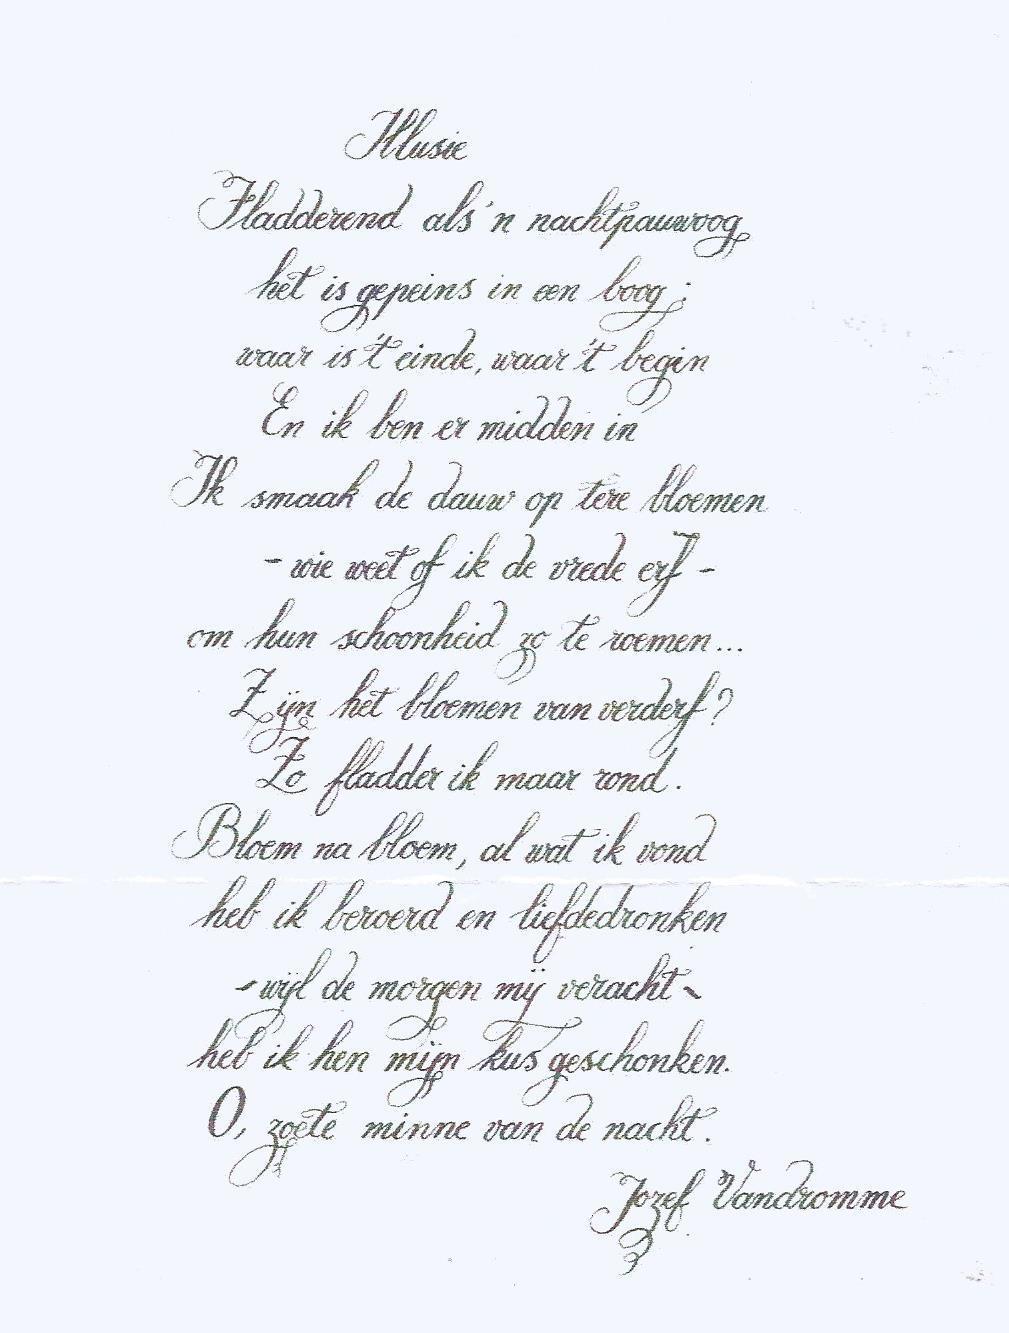 Illusie
Fladderend als 'n nachtpauwoog
het is gepeins in een boog;
waar is 't einde, waar 't begin
En ik ben er midden in
Ik smaak de dauw op tere bloemen
- wie weet of ik de vrede erf -
om hun schoonheid zo te roemen...
Zijn het bloemen van verderf?
Zo fladder ik maar rond.
Bloem na bloem, al wat ik vond
heb ik beroerd en liefdedronken
- wijl de morgen mij veracht -
heb ik hen mijn kus geschonken.
O, zoete minne van de nacht.
Jozef Vandromme